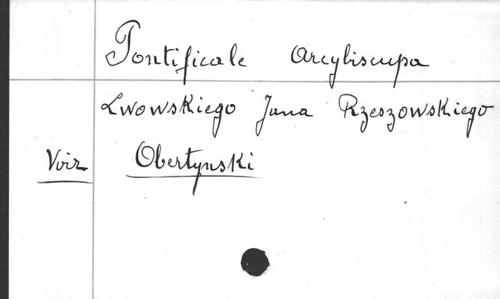 Pontificale Arcybiscupa
Lwowskiego Jana Rzeszowskiego
Voir Obertynski